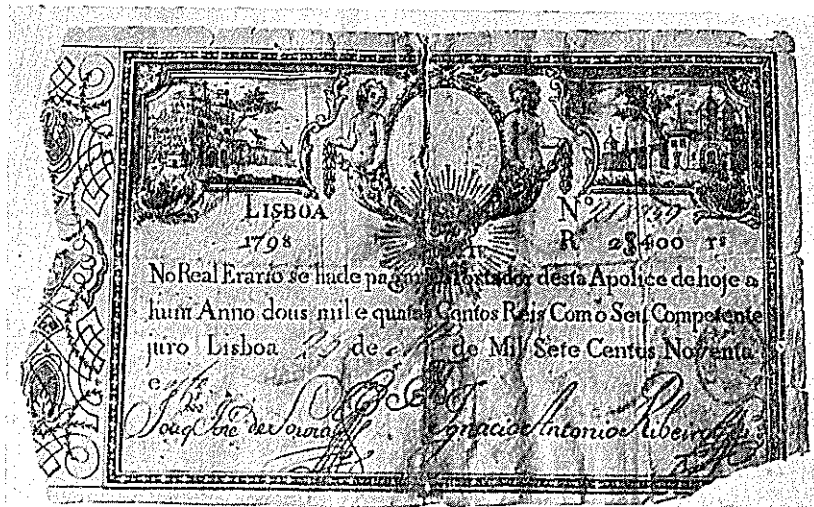 LISBOA
Nº
1798
R 2$400 rs
No Real Erario se hade pagar Portador desta Apolice de hoje a
hum Anno dous mil e quatro Centos Reis Com o Seu Competente
juro Lisboa de de Mil Sete Centos Noventa
e
Joaq José de Souza Ignacio Antonio Ribeiro